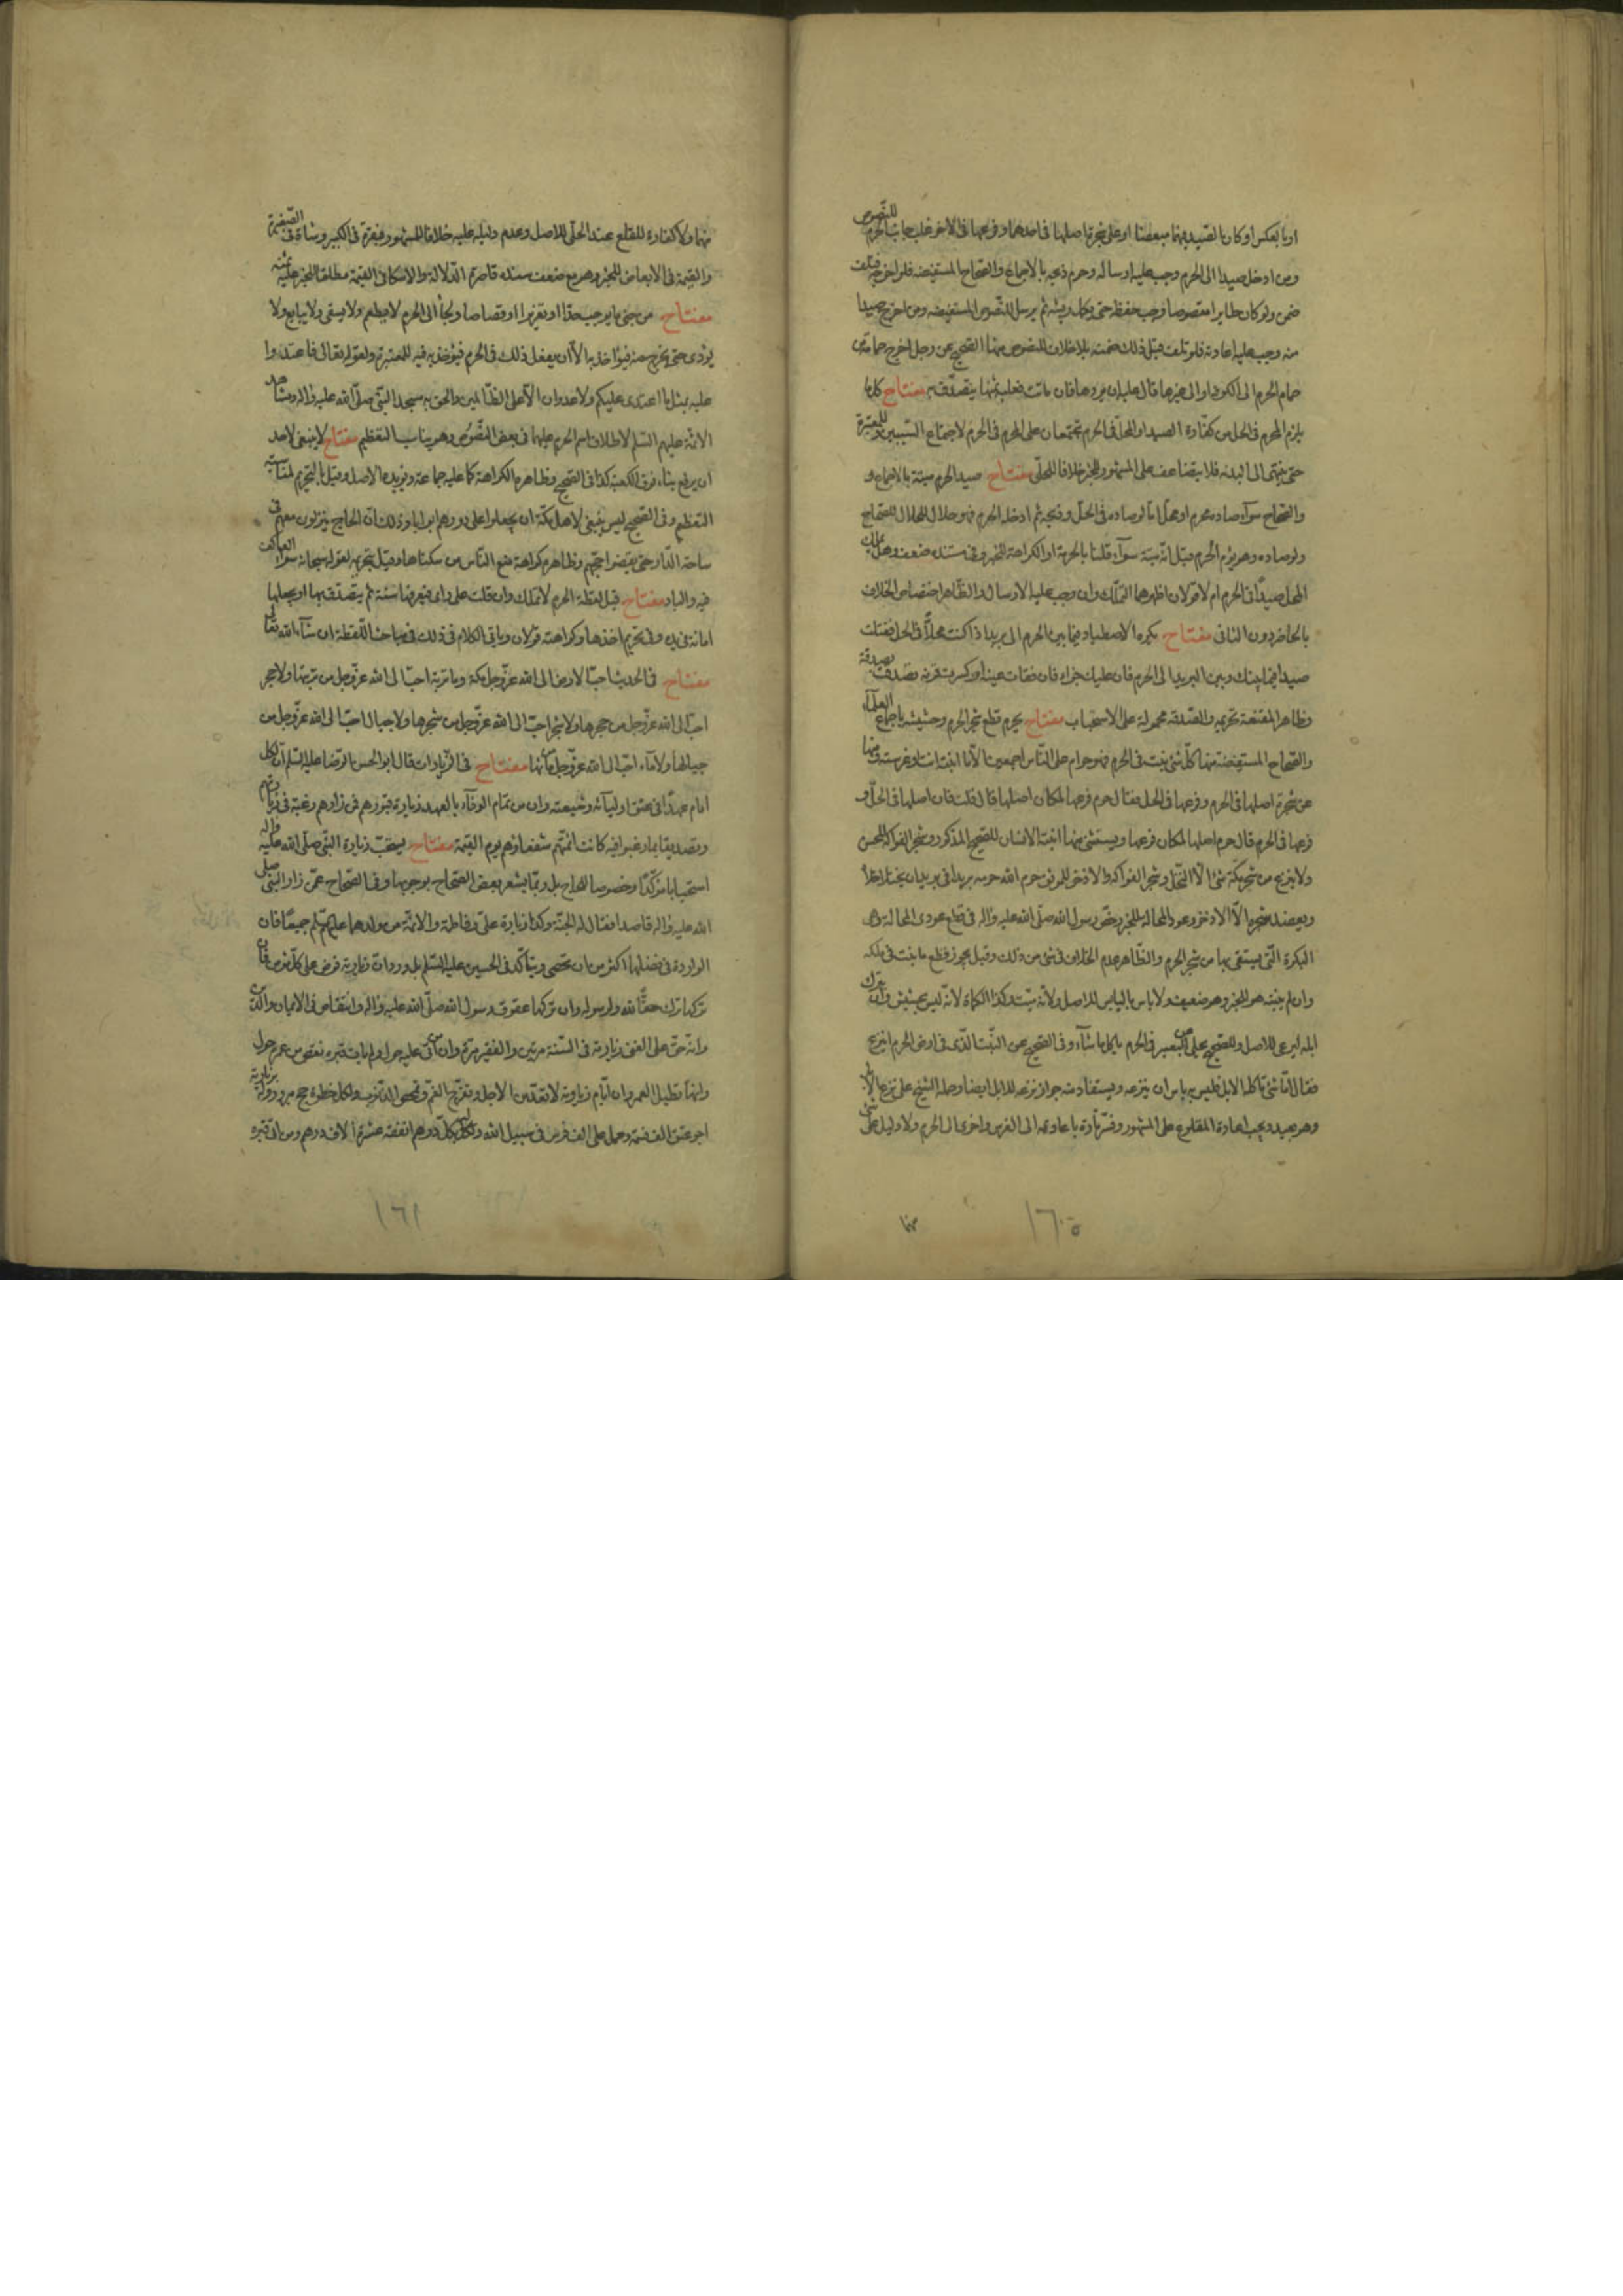 او بالعكس او كان الصيد بينهما مبعضا او على شجرة اصلها فى احدهما و فرعها فى الاخر غلب جانب الحرم للنصوص
ومن ادخل صيدا الى الحرم وجب عليه ارساله وحرم ذبحه بالاجماع والصحاح المستفيضه فلو اخرجه فتلف
ضمن ولو كان طايرا مقصوصا وجب حفظه حتى يكمل ريشه ثم يرسل للنصوص المستفيضه ومن اخرج صيدا
منه وجب عليه اعادته فلو تلف قبل ذلك ضمنه بلاخلاف للنصوص منها الصحيح عن رجل اخرج حمامة من
حمام الحرم الى الكوفة او الى غيرها قال عليه ان يردها فان ماتت فعليه ثمنها يتصدق به مفتاح كلما
يلزم المحرم فى الحل من كفارة الصيد او المحل فى الحرم تجتمعان على المحرم فى الحرم لاجتماع السببين وللمعتبرة
حتى ينتهى الى البدنه فلا يتضاعف على المشهور للخبر خلافا للحلى مفتاح صيد الحرم ميتة بالاجماع و
والصحاح سوآء صاده محرم او محل اما لو صاده فى الحل وذبحه ثم ادخله الحرم فهو حلال للمحل للصحاح
ولو صاده وهو يؤم الحرم قيل انه ميتة سوآء قلنا بالحرمة او الكراهة للخبر وفى سنده ضعف وهل يملك
المحل صيدا فى الحرم ام لا قولان اظهرهما التملك وان وجب عليه الارسال والظاهر اختصاص الخلاف
بالحاضر دون النائى مفتاح يكره الاصطياد فيما بين الحرم الى بريد اذا كنت محلا فى الحل فقتلت
صيدا فيما بينك وبين البريد الى الحرم فان عليك جزاه فان فقات عينه او كسرت قرنه تصدقت بصدقة
وظاهر المقنعة تحريمه والصدقه محمولة على الاستحباب مفتاح يحرم قطع شجر الحرم وحشيشه باجماع العلمآء
والصحاح المستفيضة منها كل شئ ينبت فى الحرم فهو حرام على الناس اجمعين الا ما انبته انت او غرسته ومنها
عن شجرة اصلها فى الحرم وفرعها فى الحل فقال حرم فرعها لمكان اصلها قال قلت فان اصلها فى الحل و
فرعها فى الحرم قال حرم اصلها لمكان فرعها ويستثنى منها ما انبته الانسان للصحيح المذكور وشجر الفواكه للحسن
ولا ينزع من شجر مكة شئ الا النخل وشجر الفواكه والاذخر للموثق حرم الله حرمه بريدا فى بريد ان يختلا خلاه
ويعضد شجره الا الاذخر وعود المحالة للخبر رخص رسول الله صلى الله عليه واله فى قطع عودى المحالة وهى
البكرة التى يستقى بها من شجر الحرم والظاهر عدم الخلاف فى شئ من ذلك وقيل يجوز قطع ما ينبت فى ملكه
وان لم ينبته هو للخبر وهو ضعيف ولا باس باليابس للاصل ولانه ميت وكذا الكماة لانه ليس بحشيش وان يترك
ابله ليرعى للاصل وللصحيح يخلى عن البعير فى الحرم ياكل ما شآء وفى الصحيح عن النبت الذى فى ارض الحرم اينزع
فقال اما شئ تاكله الابل فليس به باس ان ينزعه ويستفاد منه جواز نزعه للابل ايضا وحمله الشيخ على نزع الابل
وهو بعيد ويجب اعادة المقلوع على المشهور وفسر تارة باعادته الى الغرس واخرى الى الحرم ولا دليل على شئ
منها
١٦٠
منهما ولا كفارة للقلع عند الحلى للاصل وعدم دليل عليه خلافا للمشهور فبقرة فى الكبير وشاة فى الصغيرة
والقيمة فى الابعاض للخبر وهو مع ضعف سنده قاصرة الدلالة وللاسكافى القيمة مطلقا للخبر عليه ثمنه
مفتاح من جنى ما يوجب حدا او تعزيرا او قصاصا ويلجأ الى الحرم لا يطعم ولا يسقى ولا يبايع ولا
يؤدى حتى يخرج منه فيؤاخذ به الا ان يفعل ذلك فى الحرم فيؤخذ به فيه للمعتبرة ولقوله تعالى فاعتدوا
عليه بمثل ما اعتدى عليكم ولا عدوان الا على الظالمين والحق به مسجد النبى صلى الله عليه واله ومشاهد
الائمة عليهم السلم لاطلاق اسم الحرم عليها فى بعض النصوص وهو يناسب التعظيم مفتاح لا ينبغى لاحد
ان يرفع بناء فوق الكعبة كذا فى الصحيح وظاهره الكراهة كما عليه جماعة ويؤيده الاصل وقيل بالتحريم لمنافاته
التعظيم وفى الصحيح ليس ينبغى لاهل مكة ان يجعلوا على دورهم ابوابا وذلك ان الحاج ينزلون معهم فى
ساحة الدار حتى يقضوا حجهم وظاهره كراهة منع الناس من سكناها وقيل بتحريمه لقوله سبحانه سوآء العاكف
فيه والباد مفتاح قيل لقطة الحرم لا تملك وان قلت على راى فيعرفها سنة ثم يتصدق بها او يجعلها
امانة فى يده وفى تحريم اخذها وكراهته قولان وياتى الكلام فى ذلك فى مباحث اللقطة ان شآء الله تعالى
مفتاح فى الحديث احب الارض الى الله عز وجل مكة وما تربة احب الى الله عز وجل من تربتها ولا حجر
احب الى الله عز وجل من حجرها ولا شجر احب الى الله عز وجل من شجرها ولا جبال احب الى الله عز وجل من
جبالها ولا مآء احب الى الله عز وجل من مآئها مفتاح فى الزيارات قال ابو الحسن الرضا عليه السلم ان لكل
امام عهدا فى عنق اوليآئه وشيعته وان من تمام الوفآء بالعهد زيارة قبورهم فمن زارهم رغبة فى زيارتهم
وتصديقا بما رغبوا فيه كانت ائمتهم شفعاؤهم يوم القيمة مفتاح يستحب زيارة النبى صلى الله عليه واله
استحبابا مؤكدا وخصوصا للحاج بل ربما يشعر بعض الصحاح بوجوبها وفى الصحاح عمن زار النبى صلى
الله عليه واله قاصدا فقال له الجنة وكذا زيارة على وفاطمة والائمة من ولدهما عليهم السلم جميعا فان
الواردة فى فضلها اكثر من ان تحصى ويتأكد فى الحسين عليه السلم بل ورد ان زيارته فرض على كل مؤمن فان
تركها ترك حقا لله ولرسوله وان تركها عقوق رسول الله صلى الله عليه واله وانتقاص فى الايمان والدين
وانه حق على الغنى زيارته فى السنة مرتين والفقير مرة وان من اتى عليه حول ولم يات قبره نقص من عمره حول
وانها تطيل العمر وان ايام زيارته لا تعد من الاجل وتفرج الغم وتمحص الذنوب ولكل خطوة حجة مبرورة وله بزيارته
اجر عتق الف نسمة وحمل على الف فرس فى سبيل الله وله بكل درهم انفقه عشرة الاف درهم ومن اتى قبره
١٦١